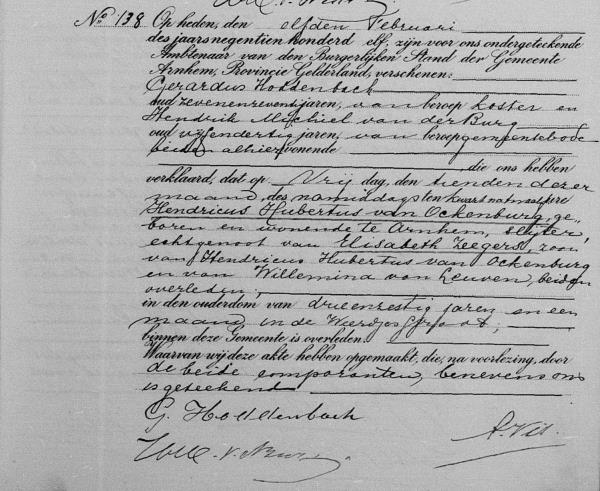 No 138 Op heden, den elfden Februari
des jaars negentien honderd elf, zijn voor ons ondergeteekende
Ambtenaar van den Burgerlijken Stand der Gemeente
Arnhem, Provincie Gelderland, verschenen:
Gerardus Hoddenbach
oud zevenenzeventig jaren, van beroep koster en
Hendrik Michiel van der Burg
oud vijfendertig jaren, van beroep gemeentebode
beiden alhier wonende
die ons hebben
verklaard, dat op Vrijdag, den tienden dezer
maand, des namiddags ten kwart na twaalf ure
Hendricus Hubertus van Ockenburg, ge-
boren en wonende te Arnhem, slijter,
echtgenoot van Elisabeth Zeegers, zoon
van Hendricus Hubertus van Ockenburg
en van Willemina van Leuven, beiden
overleden,
in den ouderdom van drieenzestig jaren en een
maand in de Weerdjesstraat,
binnen deze Gemeente is overleden.
Waarvan wij deze akte hebben opgemaakt, die, na voorlezing, door
de beide comparanten, benevens ons
is geteekend
G. Hoddenbach